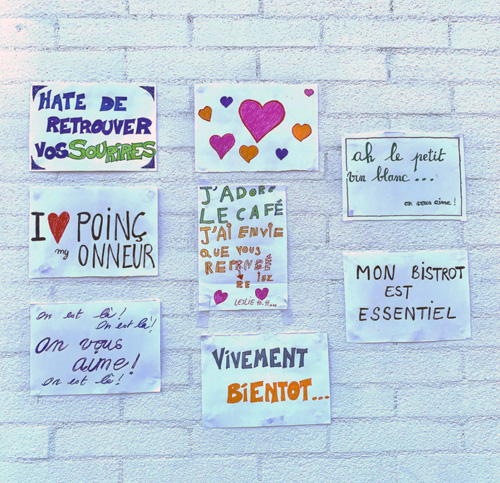 HATE DE
RETROUVER
VOS SOURIRES
ah le petit
vin blanc...
on vous aime!
I my POINÇ
ONNEUR
J'ADORE
LE CAFÉ
J'AI ENVIE
QUE VOUS
MON BISTROT
EST
ESSENTIEL
On est là!
On est là!
On vous
aime!
On est là!
VIVEMENT
BIENTOT...